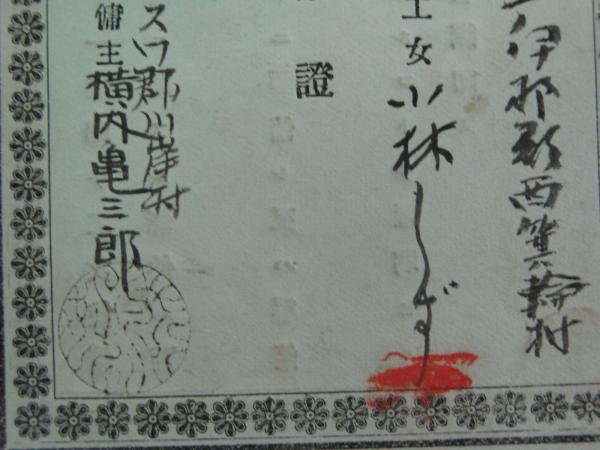 伊那郡西箕輪村
工女 小林しず
證
スワ郡川岸村
傭主 横内亀三郎